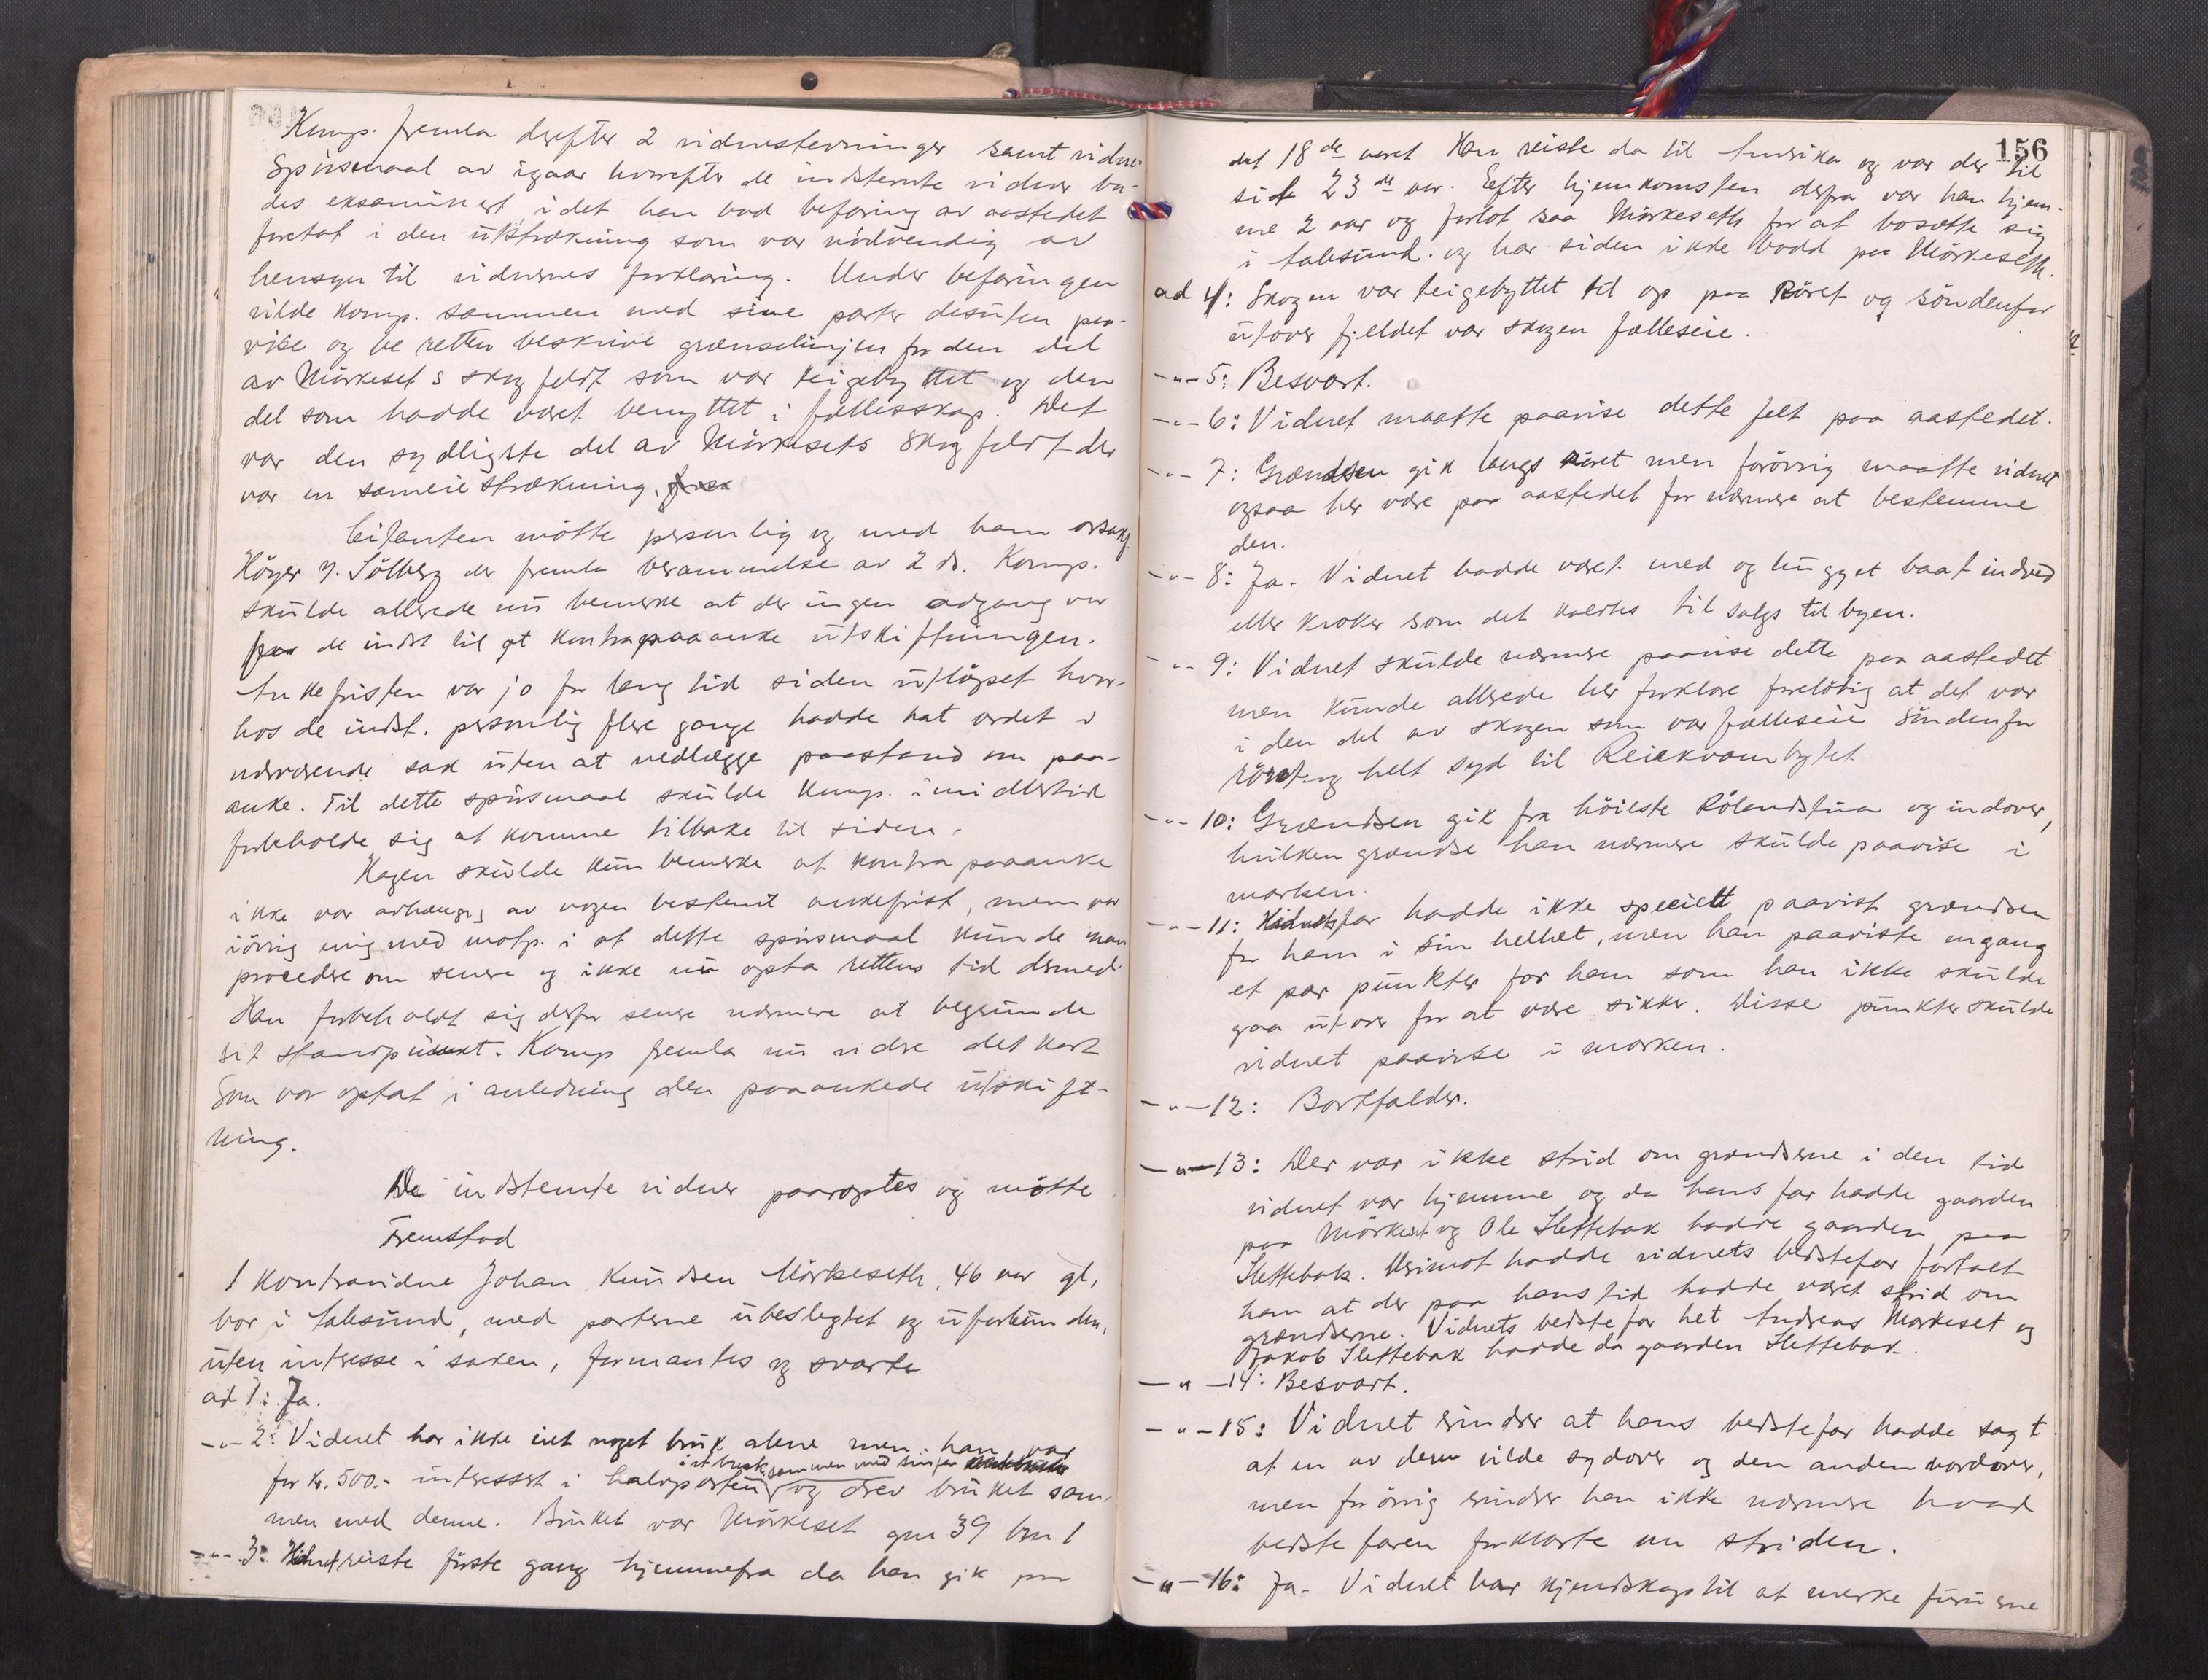 Komp. fremla derefter 2 vidnestevninger samt vidne-
spörsmaal av igaar hvorefter de indstevnte vidner ba-
des eksaminert idet han bad befaring av aastedet
foretat i den utstrækning som var nödvendig av
hensyn til vidnernes forklaring. Under befaringen
vilde komp. sammen med sine parter desuten paa-
vise og be retten beskrive grænselinjen for den del
av Mörkesets skogfeldt som var teigebyttet og den
del som hadde været benyttet i fællesskap. Det
var den sydligste del av Mörkesets skogfeldt der
var en sameiestrækning.
Citanten mötte personlig og med ham orsakf.
Höyer N. Sölberg der fremla berammelse av 2 ds. Komp.
skulde allerede nu bemerke at der ingen adgang var
for de indst til at kontrapaaanke utskiftningen.
Ankefristen var jo for lang tid siden utlöpet hvor-
hos de indst. personlig flere gange hadde hat ordet i
nærværende sak uten at nedlægge paastand om paa-
anke. Til dette spörsmaal skulde komp. imidlertid
forbeholde sig at komme tilbake til siden.
Hagen skulde kun bemerke at kontrapaaanke
ikke var avhængig av nogen bestemt ankefrist, men var
iövrig enig med motp. i at dette spörsmaal kunde man
procedere om senere og ikke nu opta rettens tid dermed.
Han forbeholdt sig derfor senere nærmere at begrunde
sit standpunkt. Komp fremla nu videre det kart
som var optat i anledning den paaankede utskift-
ning.
De indstevnte vidner paaroptes og mötte.
Fremstod
1 kontravidne Johan Knudsen Mörkeseth, 46 aar gl,
bor i Aalesund, med parterne ubeslegtet og uforbunden,
uten interesse i saken, formantes og svarte
ad 1: Ja.
-"- 2: Vidnet har ikke eiet noget bruk alene men han var
iet bruk sammen med sin far
for kr. 500.- interessert i halvparten og drev bruket sam-
men med denne. Bruket var Mörkeset gnr 39 bnr 1
-"- 3: Vidnet reiste förste gang hjemmefra da han gik paa
156
det 18de aaret Han reiste da til Amerika og var der til
sit 23de aar. Efter hjemkomsten derfra var han hjem-
me 2 aar og forlot saa Mörkeseth for at bosætte sig
i Aalesund. og har siden ikke bodd paa Mörkeseth.
ad 4: Skogen var teigebyttet til op paa Röret og söndenfor
utover fjeldet var skogen fælleseie.
-"- 5: Besvart.
-"- 6: Vidnet maatte paavise dette felt paa aastedet.
-"- 7: Grændsen gik langs röret men forövrig maatte vidnet
ogsaa her være paa aastedet for nærmere at bestemme
den.
-"- 8: Ja. Vidnet hadde været med og hugget baatindved
eller kroker som det kaldtes til salgs til byen.
-"- 9: Vidnet skulde nærmere paavise dette paa aastedet
men kunde allerede her forklare forelöbig at det var
i den del av skogen som var fælleseie söndenfor
röret og helt syd til Reiekvambytet
-"- 10: Grændsen gik fra höieste Rölandstua og indover,
hvilken grændse han nærmere skulde paavise i
marken.
-"- 11: Vidnets far hadde ikke specielt paavist grændsen
for ham i sin helhet, men han paaviste engang
et par punkter for ham som han ikke skulde
gaa utover for at være sikker. Disse punkter skulde
vidnet paavise i marken.
-"- 12: Bortfalder.
-"- 13: Der var ikke strid om grændserne i den tid
vidnet var hjemme og da hans far hadde gaarden
paa Mörkeset og Ole Slettebak hadde gaarden paa
Slettebak. Derimot hadde vidnets bedstefar fortalt
ham at der paa hans tid hadde været strid om
grændserne. Vidnets bedstefar het Andreas Mörkeset og
Jakob Slettebak hadde da gaarden Slettebak.
-"- 14: Besvart.
-"- 15: Vidnet erindrer at hans bedstefar hadde sagt
at en av dem vilde sydover og den anden nordover,
men forövrig erindrer han ikke nærmere hvad
bedstefaren forklarte om striden.
-"- 16: Ja. Vidnet har kjendskap til at merke furuerne